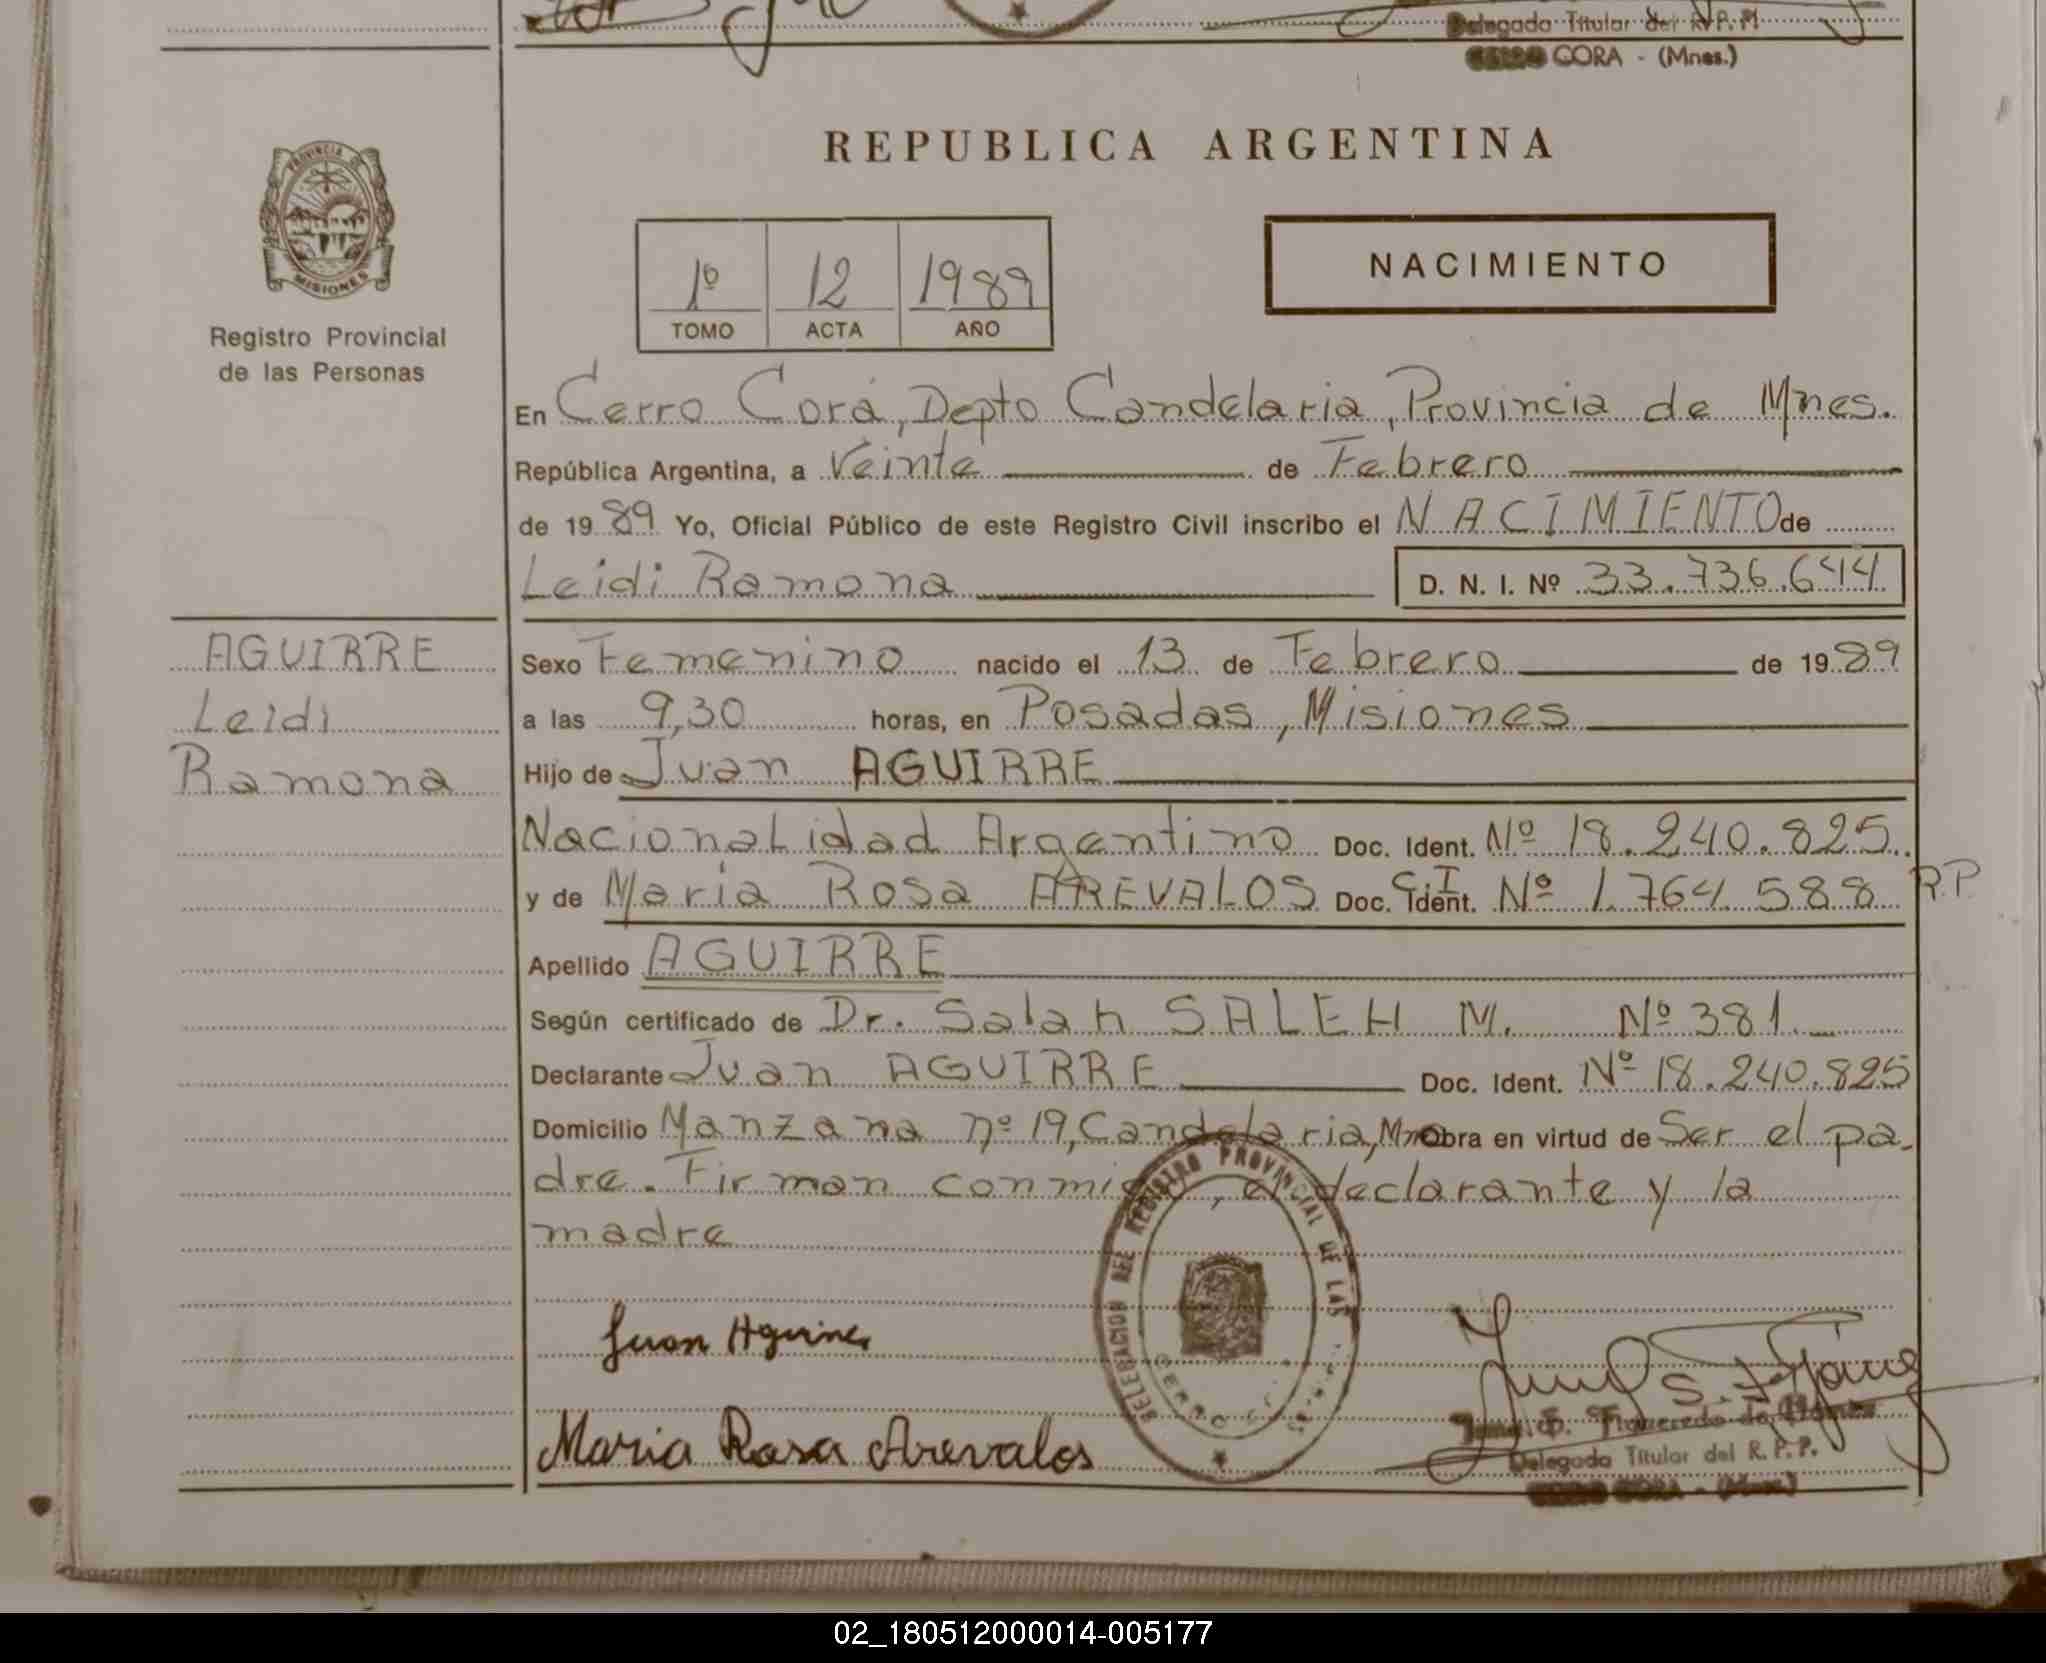 Delegada Titular del R.P.P.
CORA - (Mnes.)
PROVINCIA DE
MISIONES
Registro Provincial
de las Personas
REPUBLICA ARGENTINA
1º 12 1989
TOMO ACTA AÑO
NACIMIENTO
En Cerro Corá, Depto Candelaria, Provincia de Mnes.
República Argentina, a Veinte de Febrero
de 1989 Yo, Oficial Público de este Registro Civil inscribo el NACIMIENTO de
Leidi Ramona D. N. I. Nº 33.736.644
AGUIRRE
Leidi
Ramona
Sexo Femenino nacido el 13 de Febrero de 1989
a las 9,30 horas, en Posadas, Misiones
Hijo de Juan AGUIRRE
Nacionalidad Argentino Doc. Ident. Nº 18.240.825.
y de Maria Rosa AREVALOS Doc. Ident. C.I Nº 1.764.588 R.P.
Apellido AGUIRRE
Según certificado de Dr. Salah SALEH M. Nº 381.
Declarante Juan AGUIRRE Doc. Ident. Nº 18.240.825
Domicilio Manzana nº 19, Candelaria, Mnes Obra en virtud de Ser el pa-
dre. Firman conmigo, el declarante y la
madre
DELEGACION DEL REGISTRO PROVINCIAL DE LAS
CERRO
Juan Aguirre
Maria Rosa Arevalos
S. Figueredo de Gómez
Delegada Titular del R.P.P.
CORA - (Mnes.)
02_180512000014-005177